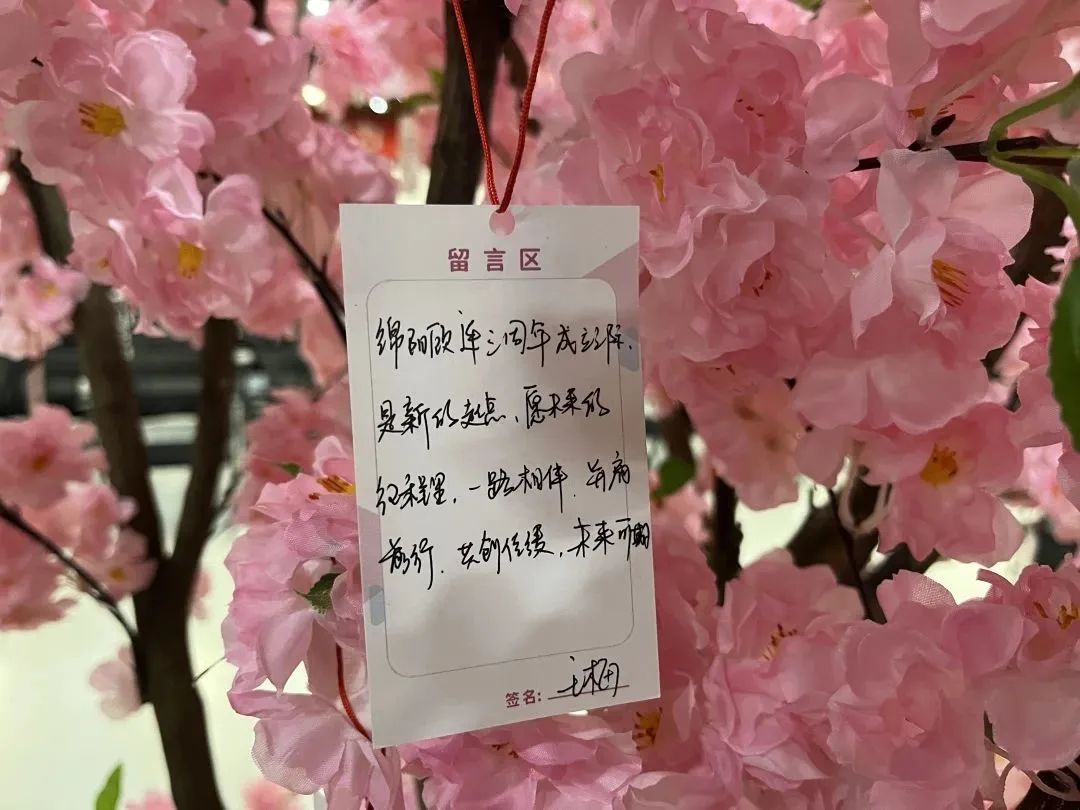 留言区
绵阳欧连三周年成立之际,
是新的起点、愿未来的
红程里,一路相伴,并肩
前行,共创佳绩,未来可期
签名:王梅